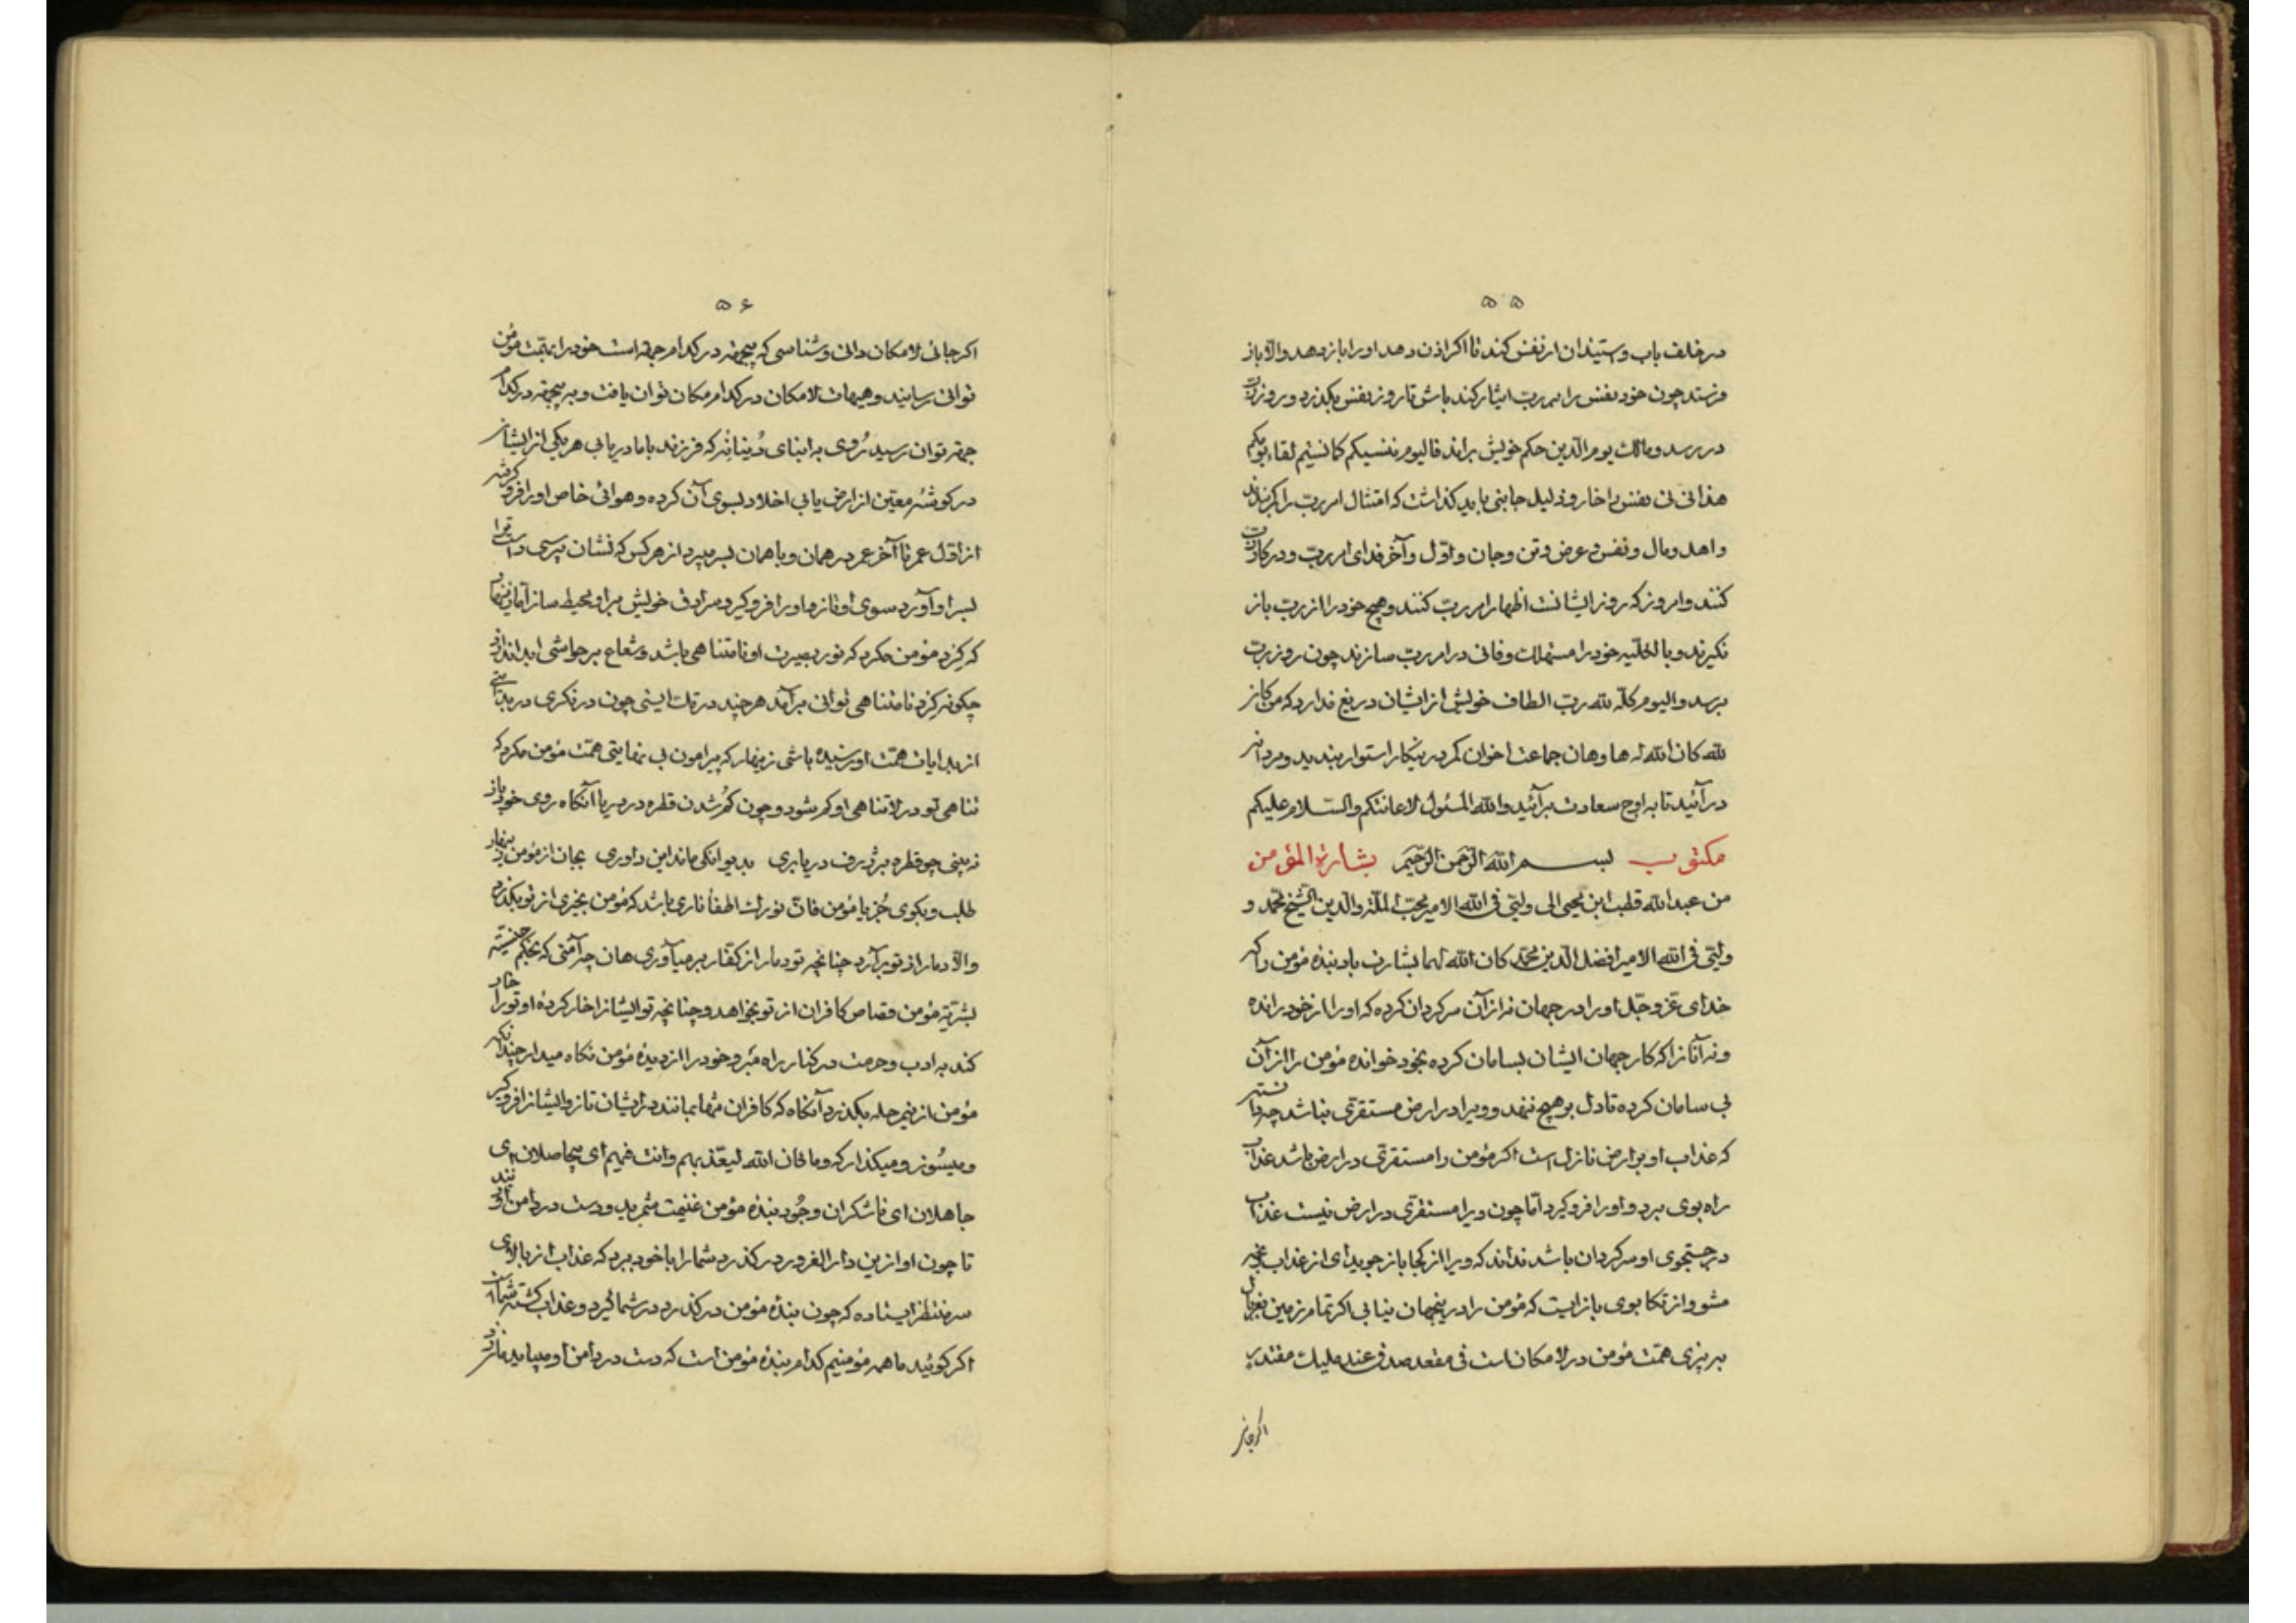 ۵۵
در خلف باب و استیذان از نفس کند تا اگر اذن دهد او را بار دهد والا باز
فرستد چون خود نفس را بر رب ایثار کند باش تا روز نفس بگذرد و روز رب
در رسد و مالک یوم الدین حکم خویش براند فالیوم ننسیکم کما نسیتم لقاء یومکم
هذا نی نی نفس را خار و ذلیل جانبی باید گذاشت که امتثال امر رب را
و اهل و مال و نفس و عرض و تن و جان و اول و آخر فدای امر رب و در کار رب
کنند و امروز که روز ایشانست اظهار امر رب کنند و هیچ خود را از رب باز
نگیرند و بالکلیه خود را مستهلک و فانی در امر رب سازند چون روز رب
برسد والیوم کله لله رب الطاف خویش از ایشان دریغ ندارد که من کان
لله کان الله له ها و هان جماعت اخوان کمر درینکار استوار بندید و مردانه
در آئید تا به اوج سعادت برآئید والله المسئول لاعانتکم والسلام علیکم
مکتوب بسم الله الرحمن الرحیم بشارة المؤمن
من عبد الله قطب ابن محیی الی ولیی فی الله الامیر محب الملة والدین الشیخ محمد و
ولیی فی الله الامیر افضل الدین محمد کان الله لهما بشارت باد بنده مؤمن را که
خدای عز و جل او را در جهان نه از آن سرگردان کرده که او را از خود رانده
و نه آنانرا که کار جهان ایشان بسامان کرده بخود خوانده مؤمن را از آن
بی سامان کرده تا دل بر هیچ ننهد و ویرا در ارض مستقری نباشد چه دانسته
که عذاب او بر ارض نازل است اگر مؤمن را مستقری در ارض باشد عذاب
راه بوی برد و او را فرو گیرد اما چون ویرا مستقری در ارض نیست عذاب
در جستجوی او سرگردان باشد نداند که ویرا از کجا باز جوید ای از عذاب
مشو و از تکاپوی باز ایست که مؤمن را درینجهان نیابی اگر تمام زمین بغربال
ببیزی همت مؤمن در لامکان است فی مقعد صدق عند ملیک مقتدر
اگر جائی
۵۶
اگر جائی لامکان دانی و شناسی که بیجهة در کدام جهة است خود را بهمت مؤمن
توانی رسانید و هیهات لامکان در کدام مکان توان یافت و به بیجهة در کدام
جهة توان رسید رُوی به ابنای دُنیا نه که فرزند با مادر یابی هر یکی از ایشان
در گوشهٔ معین از ارض یابی اخلاد بسوی آن کرده و هوائی خاص او را فرو گرفته
از اول عمر تا آخر عمر در همان و با همان بسر میبرد از هر کس که نشان پرسی ترا
بسر او آورد سوی او تاز و او را فرو گیر و سرادق خویش بر او محیط ساز اما زینهار
که گرد مؤمن مگرد که نور بصیرت او نامتناهی باشد و شعاع بر حواشی ابد اندازد
چگونه گرد نامتناهی توانی برآمد هر چند در تک ایستی چون در نگری در
از بدایات همت او رسیده باشی زینهار که پیرامون بی نهایتی همت مؤمن مگرد که
تناهی تو در لاتناهی او گم شود و چون گُم شدن قطره در دریا آنگاه روی خود باز
نه بینی چو قطره بر ژرف دریا بری بدیوانگی ماند این داوری بجان از مؤمن زینهار
طلب و بگوی جُز یا مؤمن فان نورک اطفأ ناری باشد که مؤمن بخیری از تو بگذرد
والا دمار از تو برآرد چنانچه تو دمار از کفار بر میآوری هان چه آمنی که بحکم
بشریة مؤمن قصاص کافران از تو بخواهد و چنانچه تو ایشانرا خار کردهٔ او تو را خار
کند به ادب و حرمت در کنار راه مَیرو خود را از دیدهٔ مؤمن نگاه میدار چندانکه
مؤمن ازین مرحله بگذرد آنگاه که کافران تنها بمانند در ایشان تاز و ایشانرا فرو گیر
و میسُوز و میگذار که وما کان الله لیعذبهم وانت فیهم ای بیحاصلان ای
جاهلان ای ناشکران وجُود بندهٔ مؤمن غنیمت شمرید و دست در دامن او زنید
تا چون او ازین دار الغرور در گذرد شما را با خود ببرد که عذاب از بالای
سر منتظر ایستاده که چون بندهٔ مؤمن در گذرد در شما گیرد و عذاب
اگر گوئید ما همه مؤمنیم کدام بندهٔ مؤمن است که دست در دامن او میباید